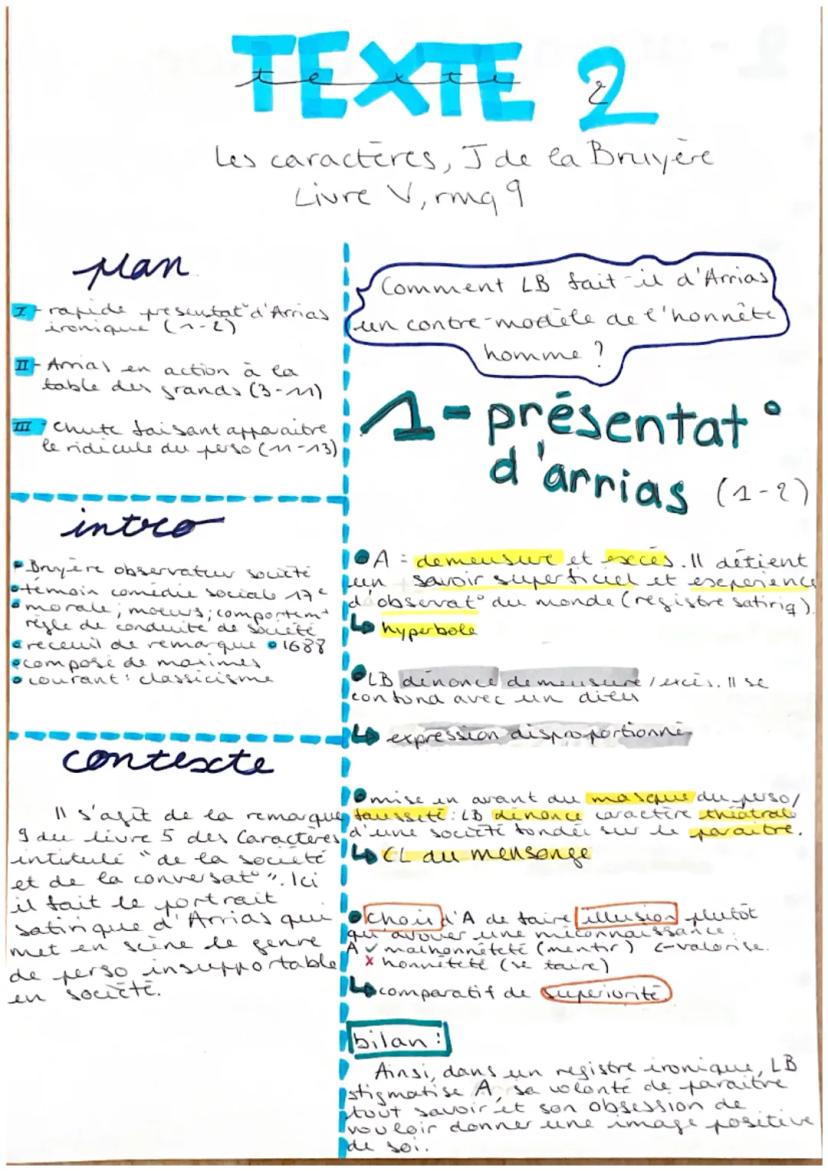 TEXTE 2
texte 2
Les caractères, J de la Bruyère
Livre V, rmq 9
plan
I - rapide présentat° d'Arrias
ironique (1-2)
II - Arrias en action à la
table des grands (3-11)
III - Chute faisant apparaitre
le ridicule du perso (11-13)
intro
• Bruyère observateur société
• témoin comédie sociale 17e
• morale ; moeurs ; comportemt
règle de conduite de société
• receuil de remarque • 1688
• composé de maximes
• courant : classicisme
contexte
Il s'agit de la remarque
9 du livre 5 des Caractères
intitulé "de la société
et de la conversat°". Ici
il fait le portrait
satirique d'Arrias qui
met en scène le genre
de perso insupportable
en société.
Comment LB fait-il d'Arrias
un contre-modèle de l'honnête
homme ?
1 - présentat°
d'arrias (1-2)
• A = demeusure et excès. Il détient
un savoir superficiel et experience
d'observat° du monde (registre satiriq).
↳ hyperbole
• LB dénonce demeusure / excès. Il se
confond avec un dieu
↳ expression disproportionné
• mise en avant du masque du perso /
fausseté : LB dénonce caractère théatrale
d'une société fondée sur le paraitre.
↳ CL du mensonge
• Choix d'A de faire illusion plutôt
qu'avouer une méconnaissance.
A ✓ malhonnêteté (mentir) ←valorise.
x honnêteté (se taire)
↳ comparatif de supériorité
bilan :
Ainsi, dans un registre ironique, LB
stigmatise A, sa volonté de paraitre
tout savoir et son obsession de
vouloir donner une image positive
de soi.